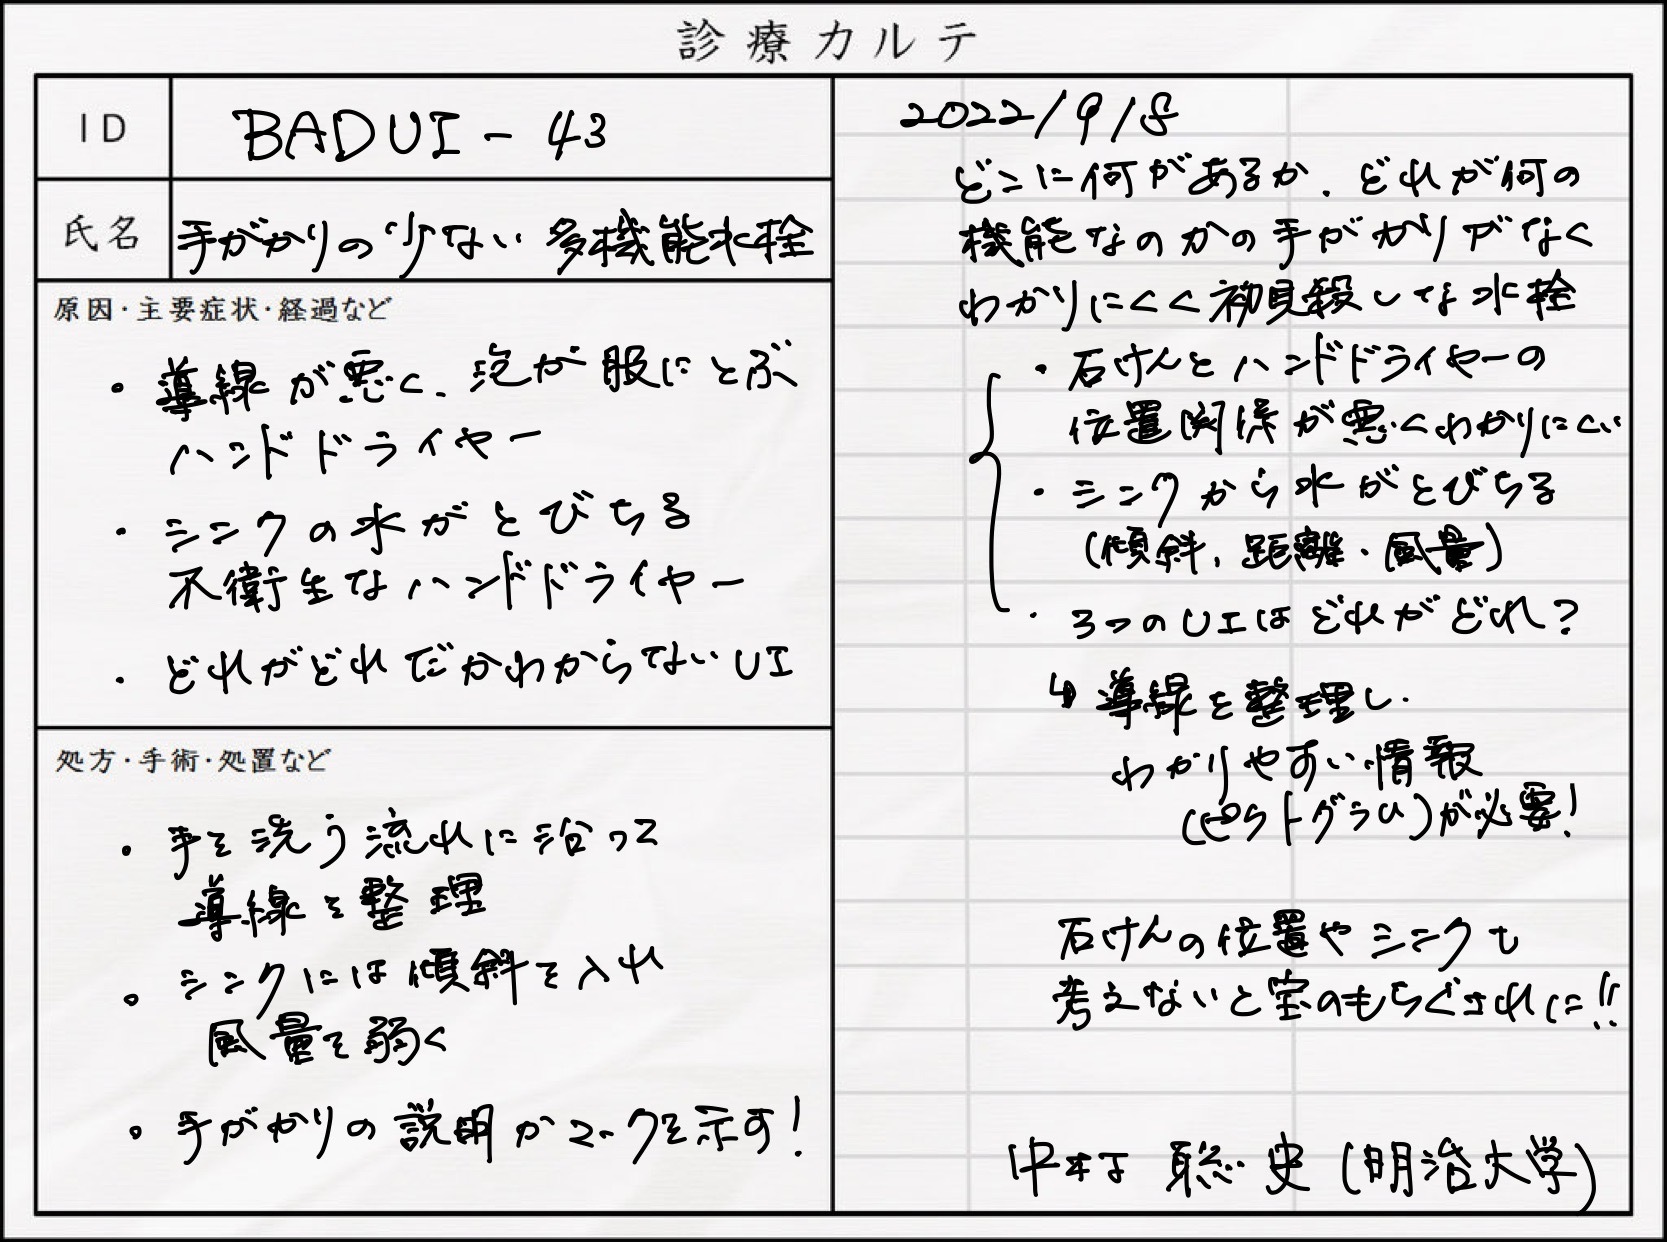 診療カルテ
ID
BADUI-43
氏名
手がかりの少ない多機能水栓
原因・主要症状・経過など
・導線が悪く、泡が服にとぶ
ハンドドライヤー
・シンクの水がとびちる
不衛生なハンドドライヤー
・どれがどれだかわからないUI
処方・手術・処置など
・手を洗う流れに沿って
導線を整理
・シンクには傾斜を入れ
風量を弱く
・手がかりの説明かマークを示す!
2022/9/8
どこに何があるか、どれが何の
機能なのかの手がかりがなく
わかりにくく初見殺しな水栓
・石けんとハンドドライヤーの
位置関係が悪くわかりにくい
・シンクから水がとびちる
(傾斜、距離・風量)
・3つのUIはどれがどれ?
↳導線を整理し、
わかりやすい情報
(ピクトグラム)が必要!
石けんの位置やシンクも
考えないと宝のもちぐされに!!
中村 聡史(明治大学)